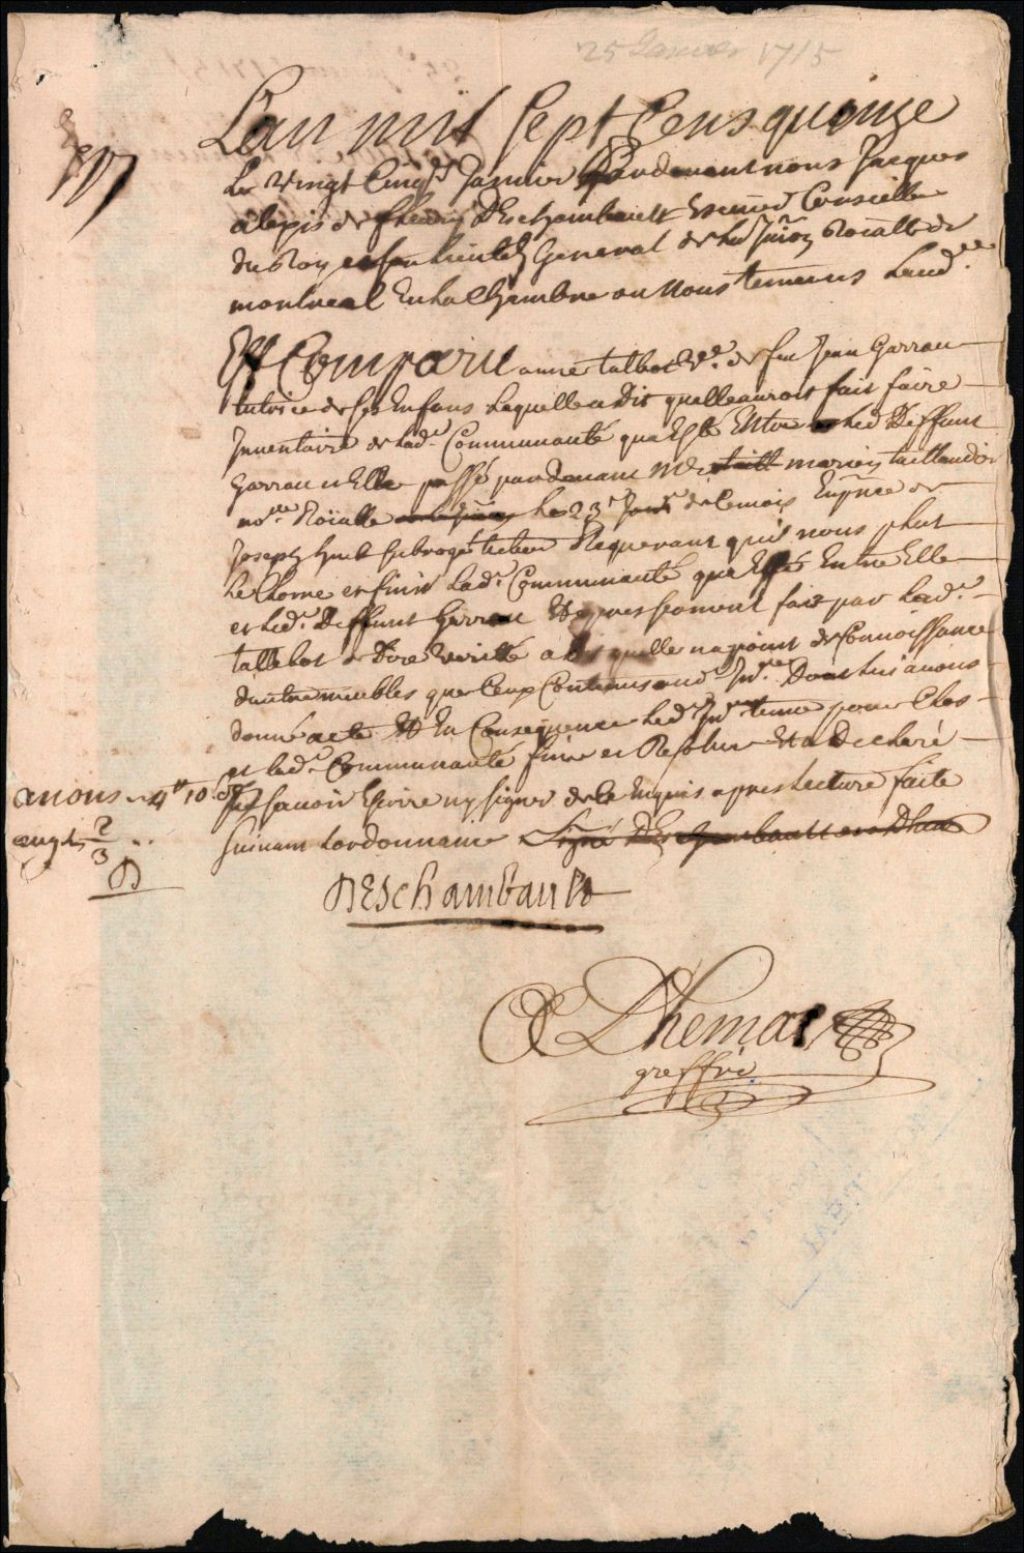 25 Janvier 1715
Lan mil Sept Cens quinze
Le Vingt Cinqe Janvier Pardevant nous Jacques
alexis de fleury Deschambault Escuier Conseiller
du Roy et son Lieutent General de la Juron Roialle de
montreal En La Chambre ou Nous tenons Laude.ce
Est Comparu anne talbot Ve.ve de feu Jean Garrau
tutrice de ses Enfans Laquelle a Dit quelle auroit fait faire
Inventaire de lad.e Communauté qua Esté Entre led Deffunt
Garrau et Elle passé pardevant Me marien taillandier
no.re Roialle Le 23e Jour de ce mois En pnce de
Joseph subrogé tuteur Requerant quil nous plut
Le Clorre et finir lad.e Communauté qua Esté Entre Elle
et led.t Deffunt Garrau Et apres serment fait par Lad.e
tallebot de Dire verité a dit quelle na point de Connoissance
dautre meubles que Ceux Contenus aud.t Inv.re Dont lui avons
donné acte Et En Consequence led.t Inv.re tenu pour Clos
et lad.e Communauté finie et Resolue Et a Declaré
ne savoir Escrire ny signer de ce Enquis apres Lecture faite
Suivant Lordonnance Signé Deschambault
a nous 4tt 10s
2
3
DEschambault
Adhemar
greffier